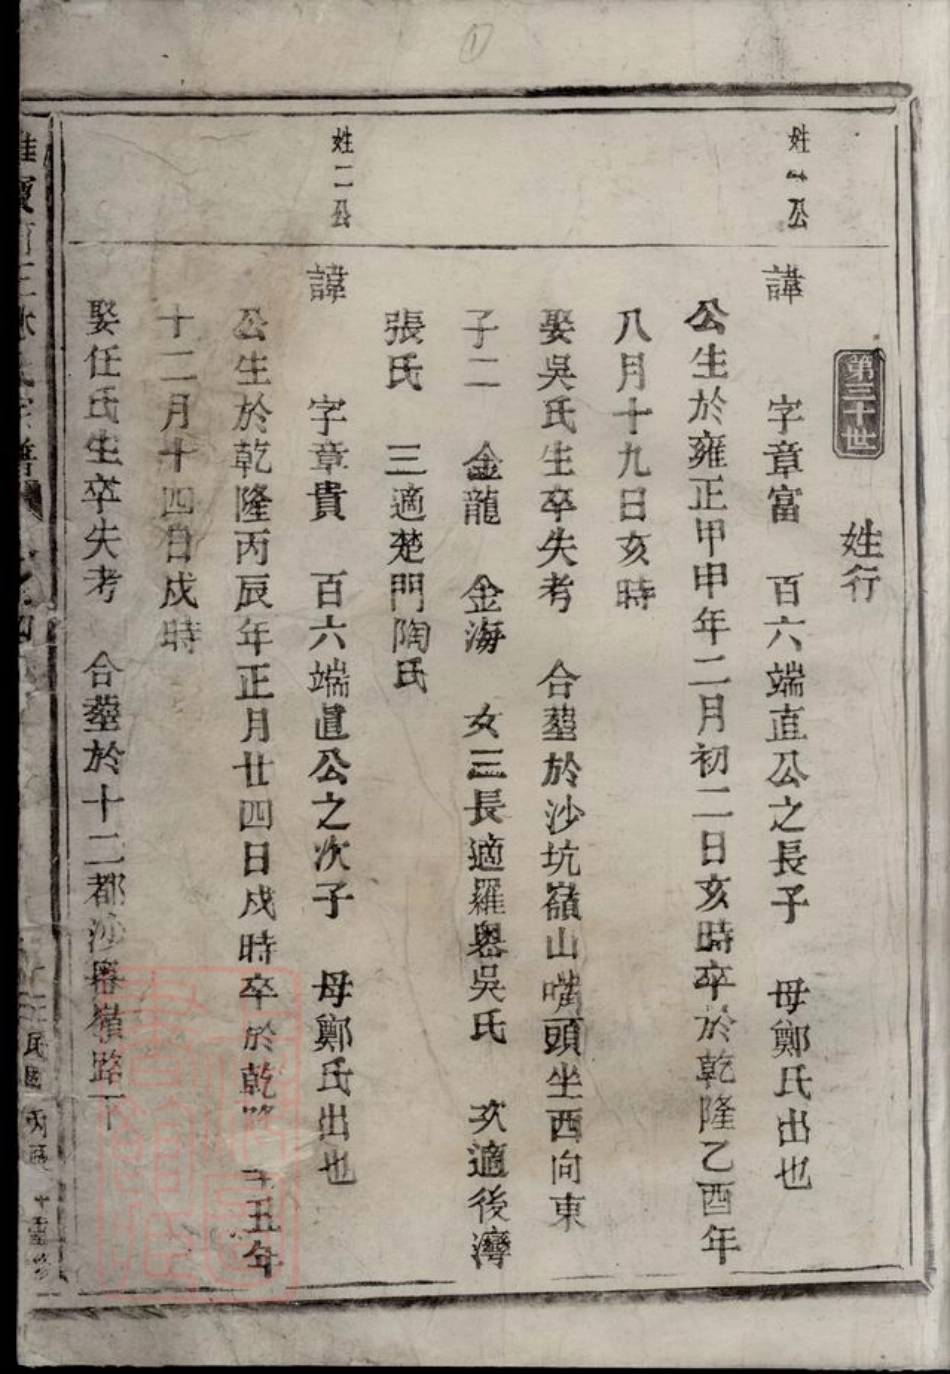 第三十世
姓行
姓一公
諱 字章富 百六端直公之長子 母鄭氏出也
公生於雍正甲申年二月初二日亥時卒於乾隆乙酉年
八月十九日亥時
娶吳氏生卒失考 合塟於沙坑嶺山嘴頭坐西向東
子二 金龍 金海 女三長適羅粵吳氏 次適後灣
張氏 三適楚門陶氏
姓二公
諱 字章貴 百六端直公之次子 母鄭氏出也
公生於乾隆丙辰年正月廿四日戌時卒於乾 丑年
十二月十四日戌時
娶任氏生卒失考 合塟於十二都沙 嶺路下
民國丙